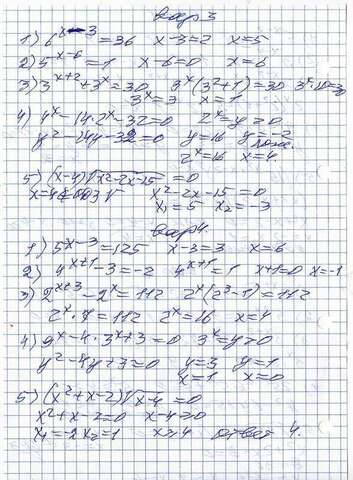 вар 3
1) 6^(x-3) = 36 x-3=2 x=5
2) 5^(x-6) = 1 x-6=0 x=6
3) 3^(x+2) + 3^x = 30 3^x(3^2+1) = 30 3^x·10=30
3^x = 3 x = 1
4) 4^x - 14·2^x - 32 = 0 2^x = y > 0
y^2 - 14y - 32 = 0 y=16 y=-2
2^x = 16 x=4
5) (x-4)√(x^2-2x-15) = 0
x^2-2x-15=0
x₁=5 x₂=-3
вар 4.
1) 5^(x-3) = 125 x-3=3 x=6
2) 4^(x+1) - 3 = -2 4^(x+1) = 1 x+1=0 x=-1
3) 2^(x+3) - 2^x = 112 2^x(2^3-1) = 112
2^x·7 = 112 2^x = 16 x=4
4) 9^x - 4·3^x + 3 = 0 3^x = y > 0
y^2 - 4y + 3 = 0 y=3 y=1
x=1 x=0
5) (x^2+x-2)√(x-4) = 0
x^2+x-2=0 x-4≥0
x₁=-2 x₂=1 x≥4 ответ 4.